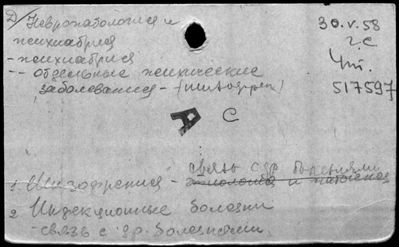 Д) Невропатология и
психиатрия
- психиатрия
-- отдельные психические
заболевания - (шизофрен)
30.V.58
г.с
Чт.
517597
А С
связь с др. болезнями
1. Шизофрения - этиология и патогенез
2 Инфекционные болезни
- связь с др. болезнями.